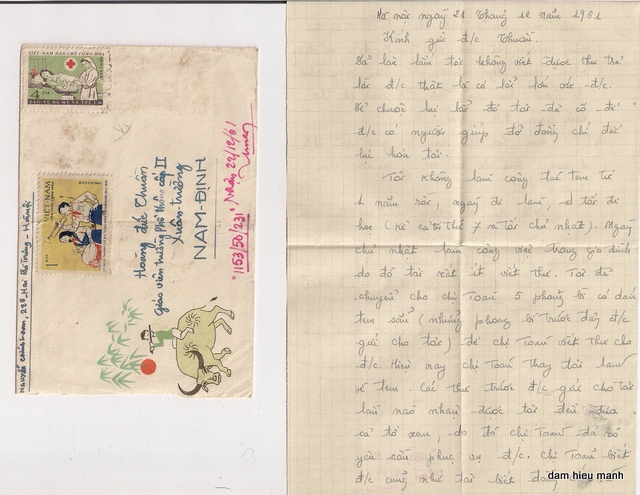 VIỆT-NAM DÂN CHỦ CỘNG HÒA
4 xu
BẢO VỆ BÀ MẸ VÀ TRẺ EM
VIỆT NAM
1 xu
Hoàng đức Thuân
giáo viên trường Phổ thông cấp II
Xuân-trường
NAM-ĐỊNH
"1153/50/231", Nhận 22/12/61
228 Hai Bà Trưng - Hà nội
Hà nội ngày 21 tháng 12 năm 1961
Kính gửi đ/c Thuân.
Đã lâu lắm tôi không viết được thư trả
lời đ/c thật là có lỗi lớn với đ/c.
Để chuộc lại lỗi đó tôi đã cố để
đ/c có người giúp đỡ đồng chí đắc
lực hơn tôi.
Tôi không làm công tác tem từ
1 năm rồi, ngày đi làm, tối đi
học (kể cả tối thứ 7 và tối chủ nhật). Ngày
chủ nhật làm công việc trong gia đình
do đó tôi rất ít viết thư. Tôi đã
chuyển cho chị Toan 5 phong bì có dán
tem sẵn (những phong bì trước đây đ/c
gửi cho tôi) để chị Toan viết thư cho
đ/c. Hiện nay chị Toan thay tôi làm
về tem. Các thư trước đ/c gửi cho tôi
lần nào nhận được tôi đều đưa
cả tổ xem, do đó chị Toan đã rõ
yêu cầu phục vụ đ/c. Chị Toan biết
đ/c cũng như tôi biết
dam hieu manh